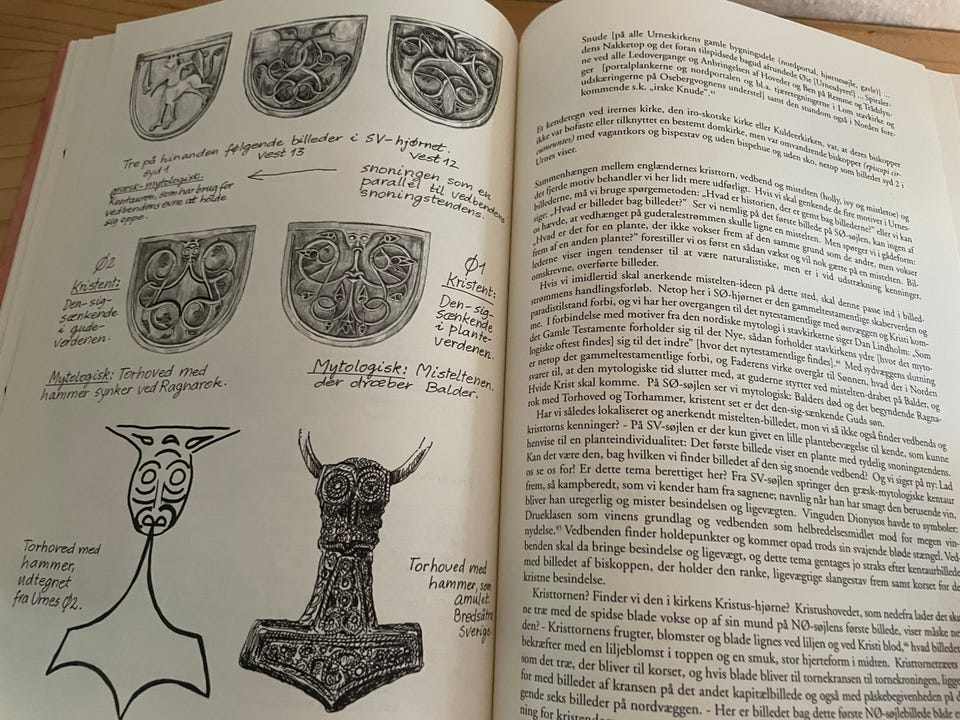 Tre på hinanden følgende billeder i SV-hjørnet.
syd 1 vest 13 vest 12
græsk-mytologisk:
Kentauren, som har brug for
vedbendens evne at holde
sig oppe.
snoningen som en
parallel til vedbendens
snoningstendens.
Ø2
Kristent:
Den-sig-
sænkende
i gude-
verdenen.
Ø1
Kristent:
Den-sig-
sænkende
i plante-
verdenen.
Mytologisk: Torhoved med
hammer synker ved Ragnarok.
Mytologisk: Misteltenen,
der dræber Balder.
Torhoved med
hammer,
udtegnet
fra Urnes Ø2.
Torhoved med
hammer, som
amulet.
Bredsätra
Sverige
Snude [på alle Urneskirkens gamle bygningsdele (nordportal, hjørnesøjle, gavle)] ...
dens Nakketop og det foran tilspidsede bagud afrundede Øie [Urnesdyret] ... Spiraler-
ne ved alle Ledovergange og Anbringelsen af Hovedet og Ben på Remme og Trekbøyn-
ger [portalplankerne og nordportalen og bl.a. tjæretegningerne i Lom stavkirke og
udskæringerne på Osebergvognens understel] samt den stundom også i Norden fore-
kommende s.k. „irske Knude".
Et kendetegn ved irernes kirke, den iro-skotske kirke eller Kuldeerkirken, var, at deres biskopper
ikke var bofaste eller tilknyttet en bestemt domkirke, men var omvandrende biskopper (episcopi cir-
cumeuntes) med vagantkors og bispestav og uden bispehue og uden sko, netop som billedet syd 2 i
Urnes viser.
Sammenhængen mellem englændernes kristtorn, vedbend og mistelten (holly, ivy og mistletoe) og
det fjerde motiv behandler vi her lidt mere udførligt. Hvis vi skal genkende de fire motiver i Urnes-
billederne, må vi bruge spørgemetoden: „Hvad er historien, der er gemt bag billederne?" eller vi kan
sige: „Hvad er billedet bag billedet?" Ser vi nemlig på det første billede på SØ-søjlen, kan ingen af
os hævde, at vedhænget på gudetalestrømmen skulle ligne en mistelten. Men spørger vi i gådeform:
„Hvad er det for en plante, der ikke vokser frem af den samme grund som de andre, men vokser
frem af en anden plante?" forestiller vi os først en sådan vækst og vil nok gætte på en mistelten. Bil-
lederne viser ingen tendenser til at være naturalistiske, men er i vid udstrækning kenninger,
omskrevne, overførte billeder.
Hvis vi imidlertid skal anerkende mistelten-ideen på dette sted, skal denne passe ind i billed-
strømmens handlingsforløb. Netop her i SØ-hjørnet er den gammeltestamentlige skaberverden og
paradistilstand forbi, og vi har her overgangen til det nytestamentlige med østvæggen og Kristi kom-
me. I forbindelse med motiver fra den nordiske mytologi i stavkirkerne siger Dan Lindholm: „Som
det Gamle Testamente forholder sig til det Nye, sådan forholder stavkirkens ydre [hvor det myto-
logiske oftest findes] sig til det indre" [hvor det nytestamentlige findes]. Med sydvæggens slutning
er netop det gammeltestamentlige forbi, og Faderens virke overgår til Sønnen, hvad der i Norden
svarer til, at den mytologiske tid slutter med, at guderne styrter ved mistelten-drabet på Balder, og
Hvide Krist skal komme. På SØ-søjlen ser vi mytologisk: Balders død og det begyndende Ragna-
rok med Torhoved og Torhammer, kristent set er det den-sig-sænkende Guds søn.
Har vi således lokaliseret og anerkendt mistelten-billedet, mon vi så ikke også finder vedbends og
kristtorns kenninger? - På SV-søjlen er der kun givet en lille plantebevægelse til kende, som kunne
henvise til en planteindividualitet: Det første billede viser en plante med tydelig snoningstendens.
Kan det være den, bag hvilken vi finder billedet af den sig snoende vedbend? Og vi siger på ny: Lad
os se os for! Er dette tema berettiget her? Fra SV-søjlen springer den græsk-mytologiske kentaur
frem, så kampberedt, som vi kender ham fra sagnene; navnlig når han har smagt den berusende vin,
bliver han uregerlig og mister besindelsen og ligevægten. Vinguden Dionysos havde to symboler:
Drueklasen som vinens grundlag og vedbenden som helbredelsesmidlet mod for megen vin-
nydelse. Vedbenden finder holdepunkter og kommer opad trods sin svajende bløde stængel. Ved-
benden skal da bringe besindelse og ligevægt, og dette tema gentages jo straks efter kentaurbilledet
med billedet af biskoppen, der holder den ranke, ligevægtige slangestav frem samt korset for de
kristne besindelse.
Kristtornen? Finder vi den i kirkens Kristus-hjørne? Kristushovedet, som nedefra lader det sk
ne træ med de spidse blade vokse op af sin mund på NØ-søjlens første billede, viser måske ne
den? - Kristtornens frugter, blomster og blade lignes ved liljen og ved Kristi blod, hvad billedet
bekræfter med en liljeblomst i toppen og en smuk, stor hjerteform i midten. Kristtorntræets
som det træ, der bliver til korset, og hvis blade bliver til tornekransen til tornekroningen, ligge
for med billedet af kransen på det andet kapitælbillede og også med påskebegivenheden på d
gende seks billeder på nordvæggen. - Her er billedet bag dette første NØ-søjlebillede både e
ning for kristendom